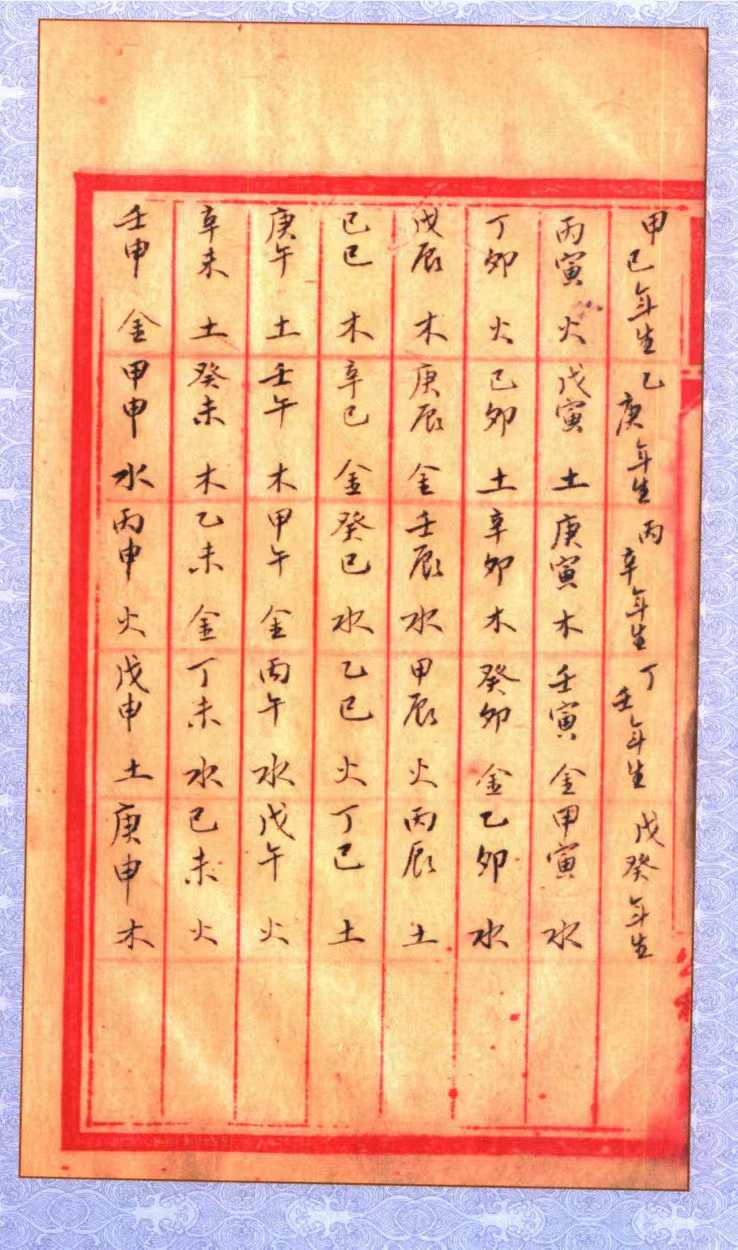 甲己年生 乙庚年生 丙辛年生 丁壬年生 戊癸年生
丙寅 火 戊寅 土 庚寅 木 壬寅 金 甲寅 水
丁卯 火 己卯 土 辛卯 木 癸卯 金 乙卯 水
戊辰 木 庚辰 金 壬辰 水 甲辰 火 丙辰 土
己巳 木 辛巳 金 癸巳 水 乙巳 火 丁巳 土
庚午 土 壬午 木 甲午 金 丙午 水 戊午 火
辛未 土 癸未 木 乙未 金 丁未 水 己未 火
壬申 金 甲申 水 丙申 火 戊申 土 庚申 木